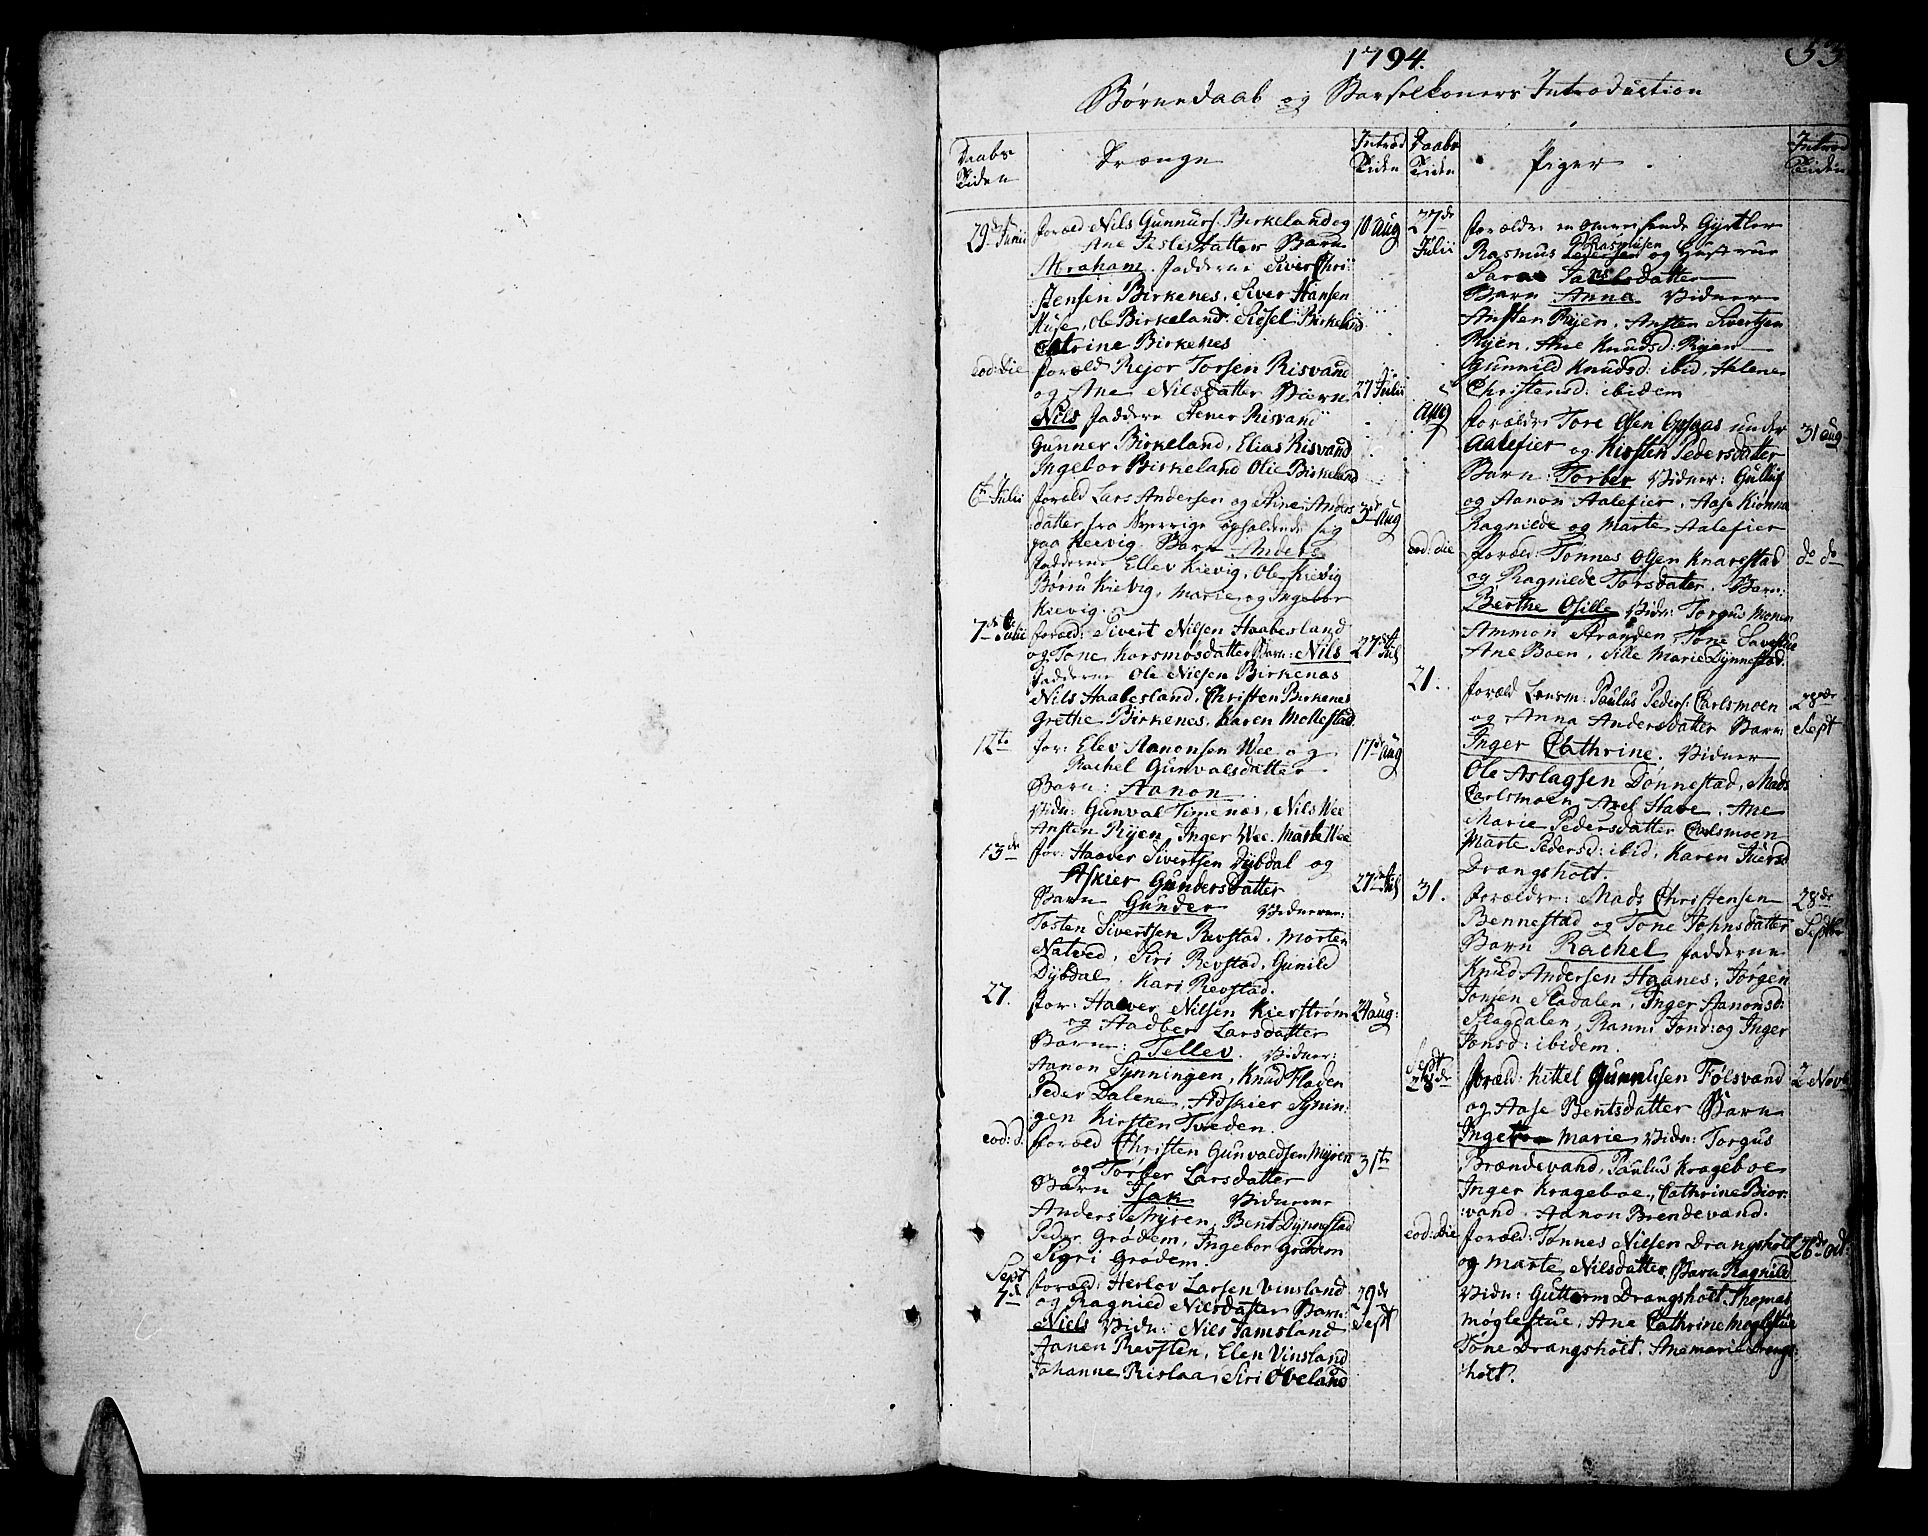 1794.
53
Børnedaab og Barselkoners Introduction
Daabs Tiden
Drænge
Introd Tiden
29de Junii
foræld Nils Gunnars: Birkeland og
10 Aug
Ane Datter Barn
Abraham. fadderne Siver Chri:
stensen Birkenes, Siver Hansen
Huse, Ole Birkeland. Sidsel Birkeland
Catrine Birkenes
eod: die
foræld Rejor Torsen Risvand
og Ane Nilsdatter Barn
27 Julii
Nils faddere Pener Risvand
Gunner Birkeland, Elias Risvand
Ingebor Birkeland Olie Birkeland
6te Julii
foræld Lars Andersen og Stine Anders
datter fra Sverrige opholdende sig
3die Aug
paa Kievig Barn Anders
fadderne Ellev Kievig, Ole Kievig
Børru Kievig, Marie og Ingebor
Kievig.
7de Julii
foræld: Sivert Nilsen Haabesland
og Tone Karsmosdatter Barn: Nils
27de Jul
fadderne Ole Nilsen Birkenes
Nils Haabesland, Christen Birkenes
Grethe Birkenes, Karen Mollestad
12te
for: Elev Aanonsen Wee og
17de Aug
Rachel Gunvalsdatter
Barn: Aanon
Vidn: Gunval Timenes, Nils Wee
Ansten Rijen, Inger Wee, Marte Wee
13de
for: Haaver Sivertsen Dybdal og
Askier Gundersdatter
27de Jul
Barn Gunder Vidnerne:
Tosten Sivertsen Revstad. Morten
Natved, Siri Revstad, Gunild
Dybdal. Kari Revstad.
27.
for: Halver Nilsen Kierstrøm
24 Aug:
og Aadber Larsdatter
Barn: Tellev. Vidner:
Aanon Synningen, Knud Fladen
Peder Dalene, Adskier Synin:
gen Kirsten Tveden.
eod: d.
foræld Christen Gunvaldsen Myren
31te
og Torber Larsdatter
Barn Isak Vidnerne
Anders Myren, Bent Dynnestad
Peder Grødem, Ingebor Grødem
Sigri Grødem.
Sept 7de
foræld: Herlov Larsen Vinsland
og Ragnild Nilsdatter Barn:
29de Sept
Niels Vidn: Nils Jamsland
Aanen Revsten, Elen Vinsland
Johanne Rislaa, Siri Øveland
Daabs Tiden
Piger
Introd Tiden
27de Julii
forældr en omreisende Gyrtler
Rasmus Pedersen Rasmusen og Hustrue
Sara Jansdatter
Barn Anna Vidner
Ansten Rijen, Ansten Sivertsen
Rijen, Ane Knudsd: Rijen
Gunnild Knudsd: ibid, Helene
Christensd: ibidem
Aug
forældr: Tore Olsen Opsaas under
31 Aug
Aalefier og Kirsten Pedersdatter
Barn: Torber Vidner: Gulluf
og Aanon Aalefier, Aase Kionna
Ragnilde og Marte Aalefier
eod: die
foræld: Tønnes Olsen Knarestad
do do
og Ragnilde Torsdatter, Barn:
Berthe Osille Vidn: Torgus Monen
Ammon Stranden Tone
Ane Boen, Sille Marie Dynnestad.
21.
foræld Lensm: Paulus Peders: Carlsmoen
28de Sept
og Anna Andersdatter Barn
Inger Cathrine. Vidner
Ole Aslagsen Dønnestad, Mads
Carlsmoen Axel Have, Ane
Marie Pedersdatter Carlsmoen
Marte Pedersd: ibid, Karen
Drangsholt.
31.
forældre: Mads Christensen
28de Septbr
Bennestad og Tone Johnsdatter
Barn Rachel fadderne
Knud Andersen Haanes, Jørgen
Jonsen Sladalen, Inger Aanonsd:
Slagdalen, Ranni Jonsd: og Inger
Jonsd: ibidem.
Sept 28de
foræld: Kittel Gunnelsen Følsvand
2 Nov
og Aase Bentsdatter Barn
Ingebor Marie Vidn: Torgus
Brændevand, Paulus Krageboe
Inger Krageboe, Cathrine Bior:
vand. Aanon Brendevand.
eod: die
foræld: Tønnes Nilsen Drangsholt
26de Oct:
og Marte Nilsdatter, Barn Ragnild
Vidn: Guttorm Drangsholt, Thomas
Møglestue, Ane Cathrine Møglestue
Tone Drangsholt, Anemarie Drangs:
holt.